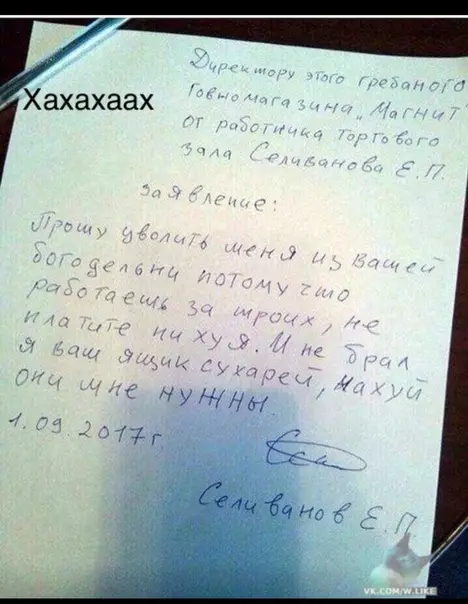 Директору этого гребаного
Говномагазина „Магнит
от работника торгового
зала Селиванова Е.П.
Хахахаах
заявление:
Прошу уволить меня из вашей
богодельни потому что
работаешь за троих, не
платите ни хуя. И не брал
я ваш ящик сухарей, нахуй
они мне нужны.
1.09.2017г.
Селиванов Е.П.
VK.COM/W.LIKE